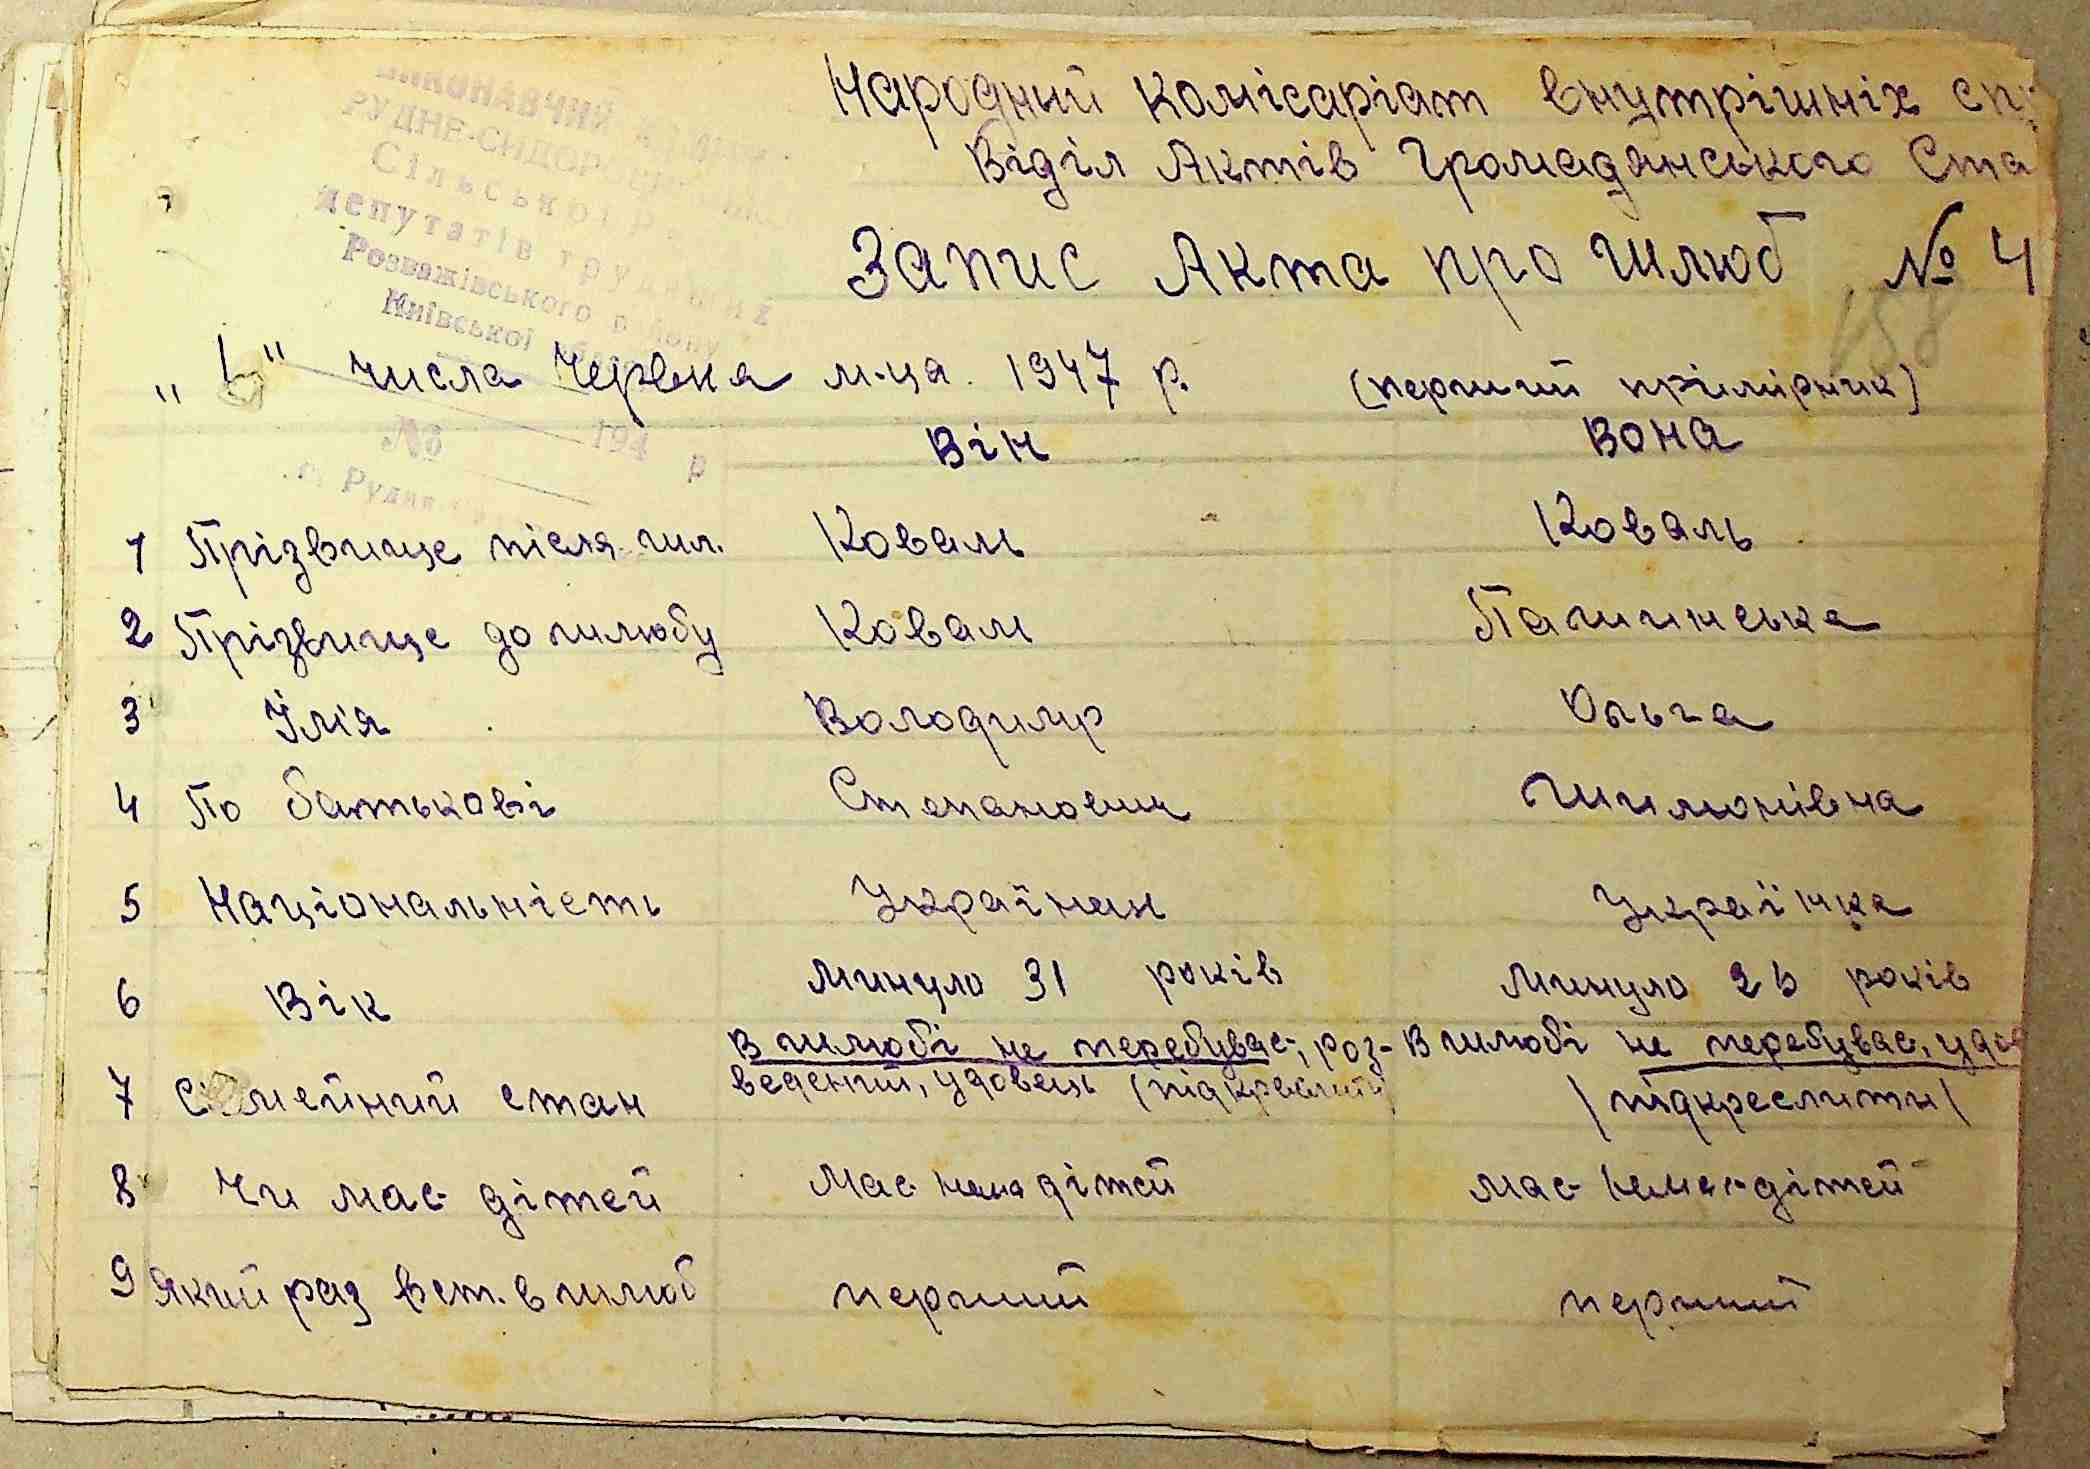 ВИКОНАВЧИЙ
РУДНЕ-СИДОР
Сільської Р
депутатів трудящих
Розважівського району
Київської
№ 194 р
Народний комісаріат внутрішніх спр
Відділ Актів Громадянського Ста
Запис Акта про шлюб № 4
158
" " числа Червня м-ця. 1947 р. (перший прімірник)
Він Вона
1 Прізвище після шл. Коваль Коваль
2 Прізвище до шлюбу Коваль
3 Імія Володимир Ольга
4 По батькові Степанович Шимонівна
5 Національність Українець Українка
6 Вік Минуло 31 років Минуло років
В шлюбі не перебуває, роз- В шлюбі не перебуває, удов
7 Сімейний стан ведений, удовець (підкреслити) /підкреслити/
8 Чи має дітей Має нема дітей має немає дітей
9 Який раз вст. в шлюб перший перший